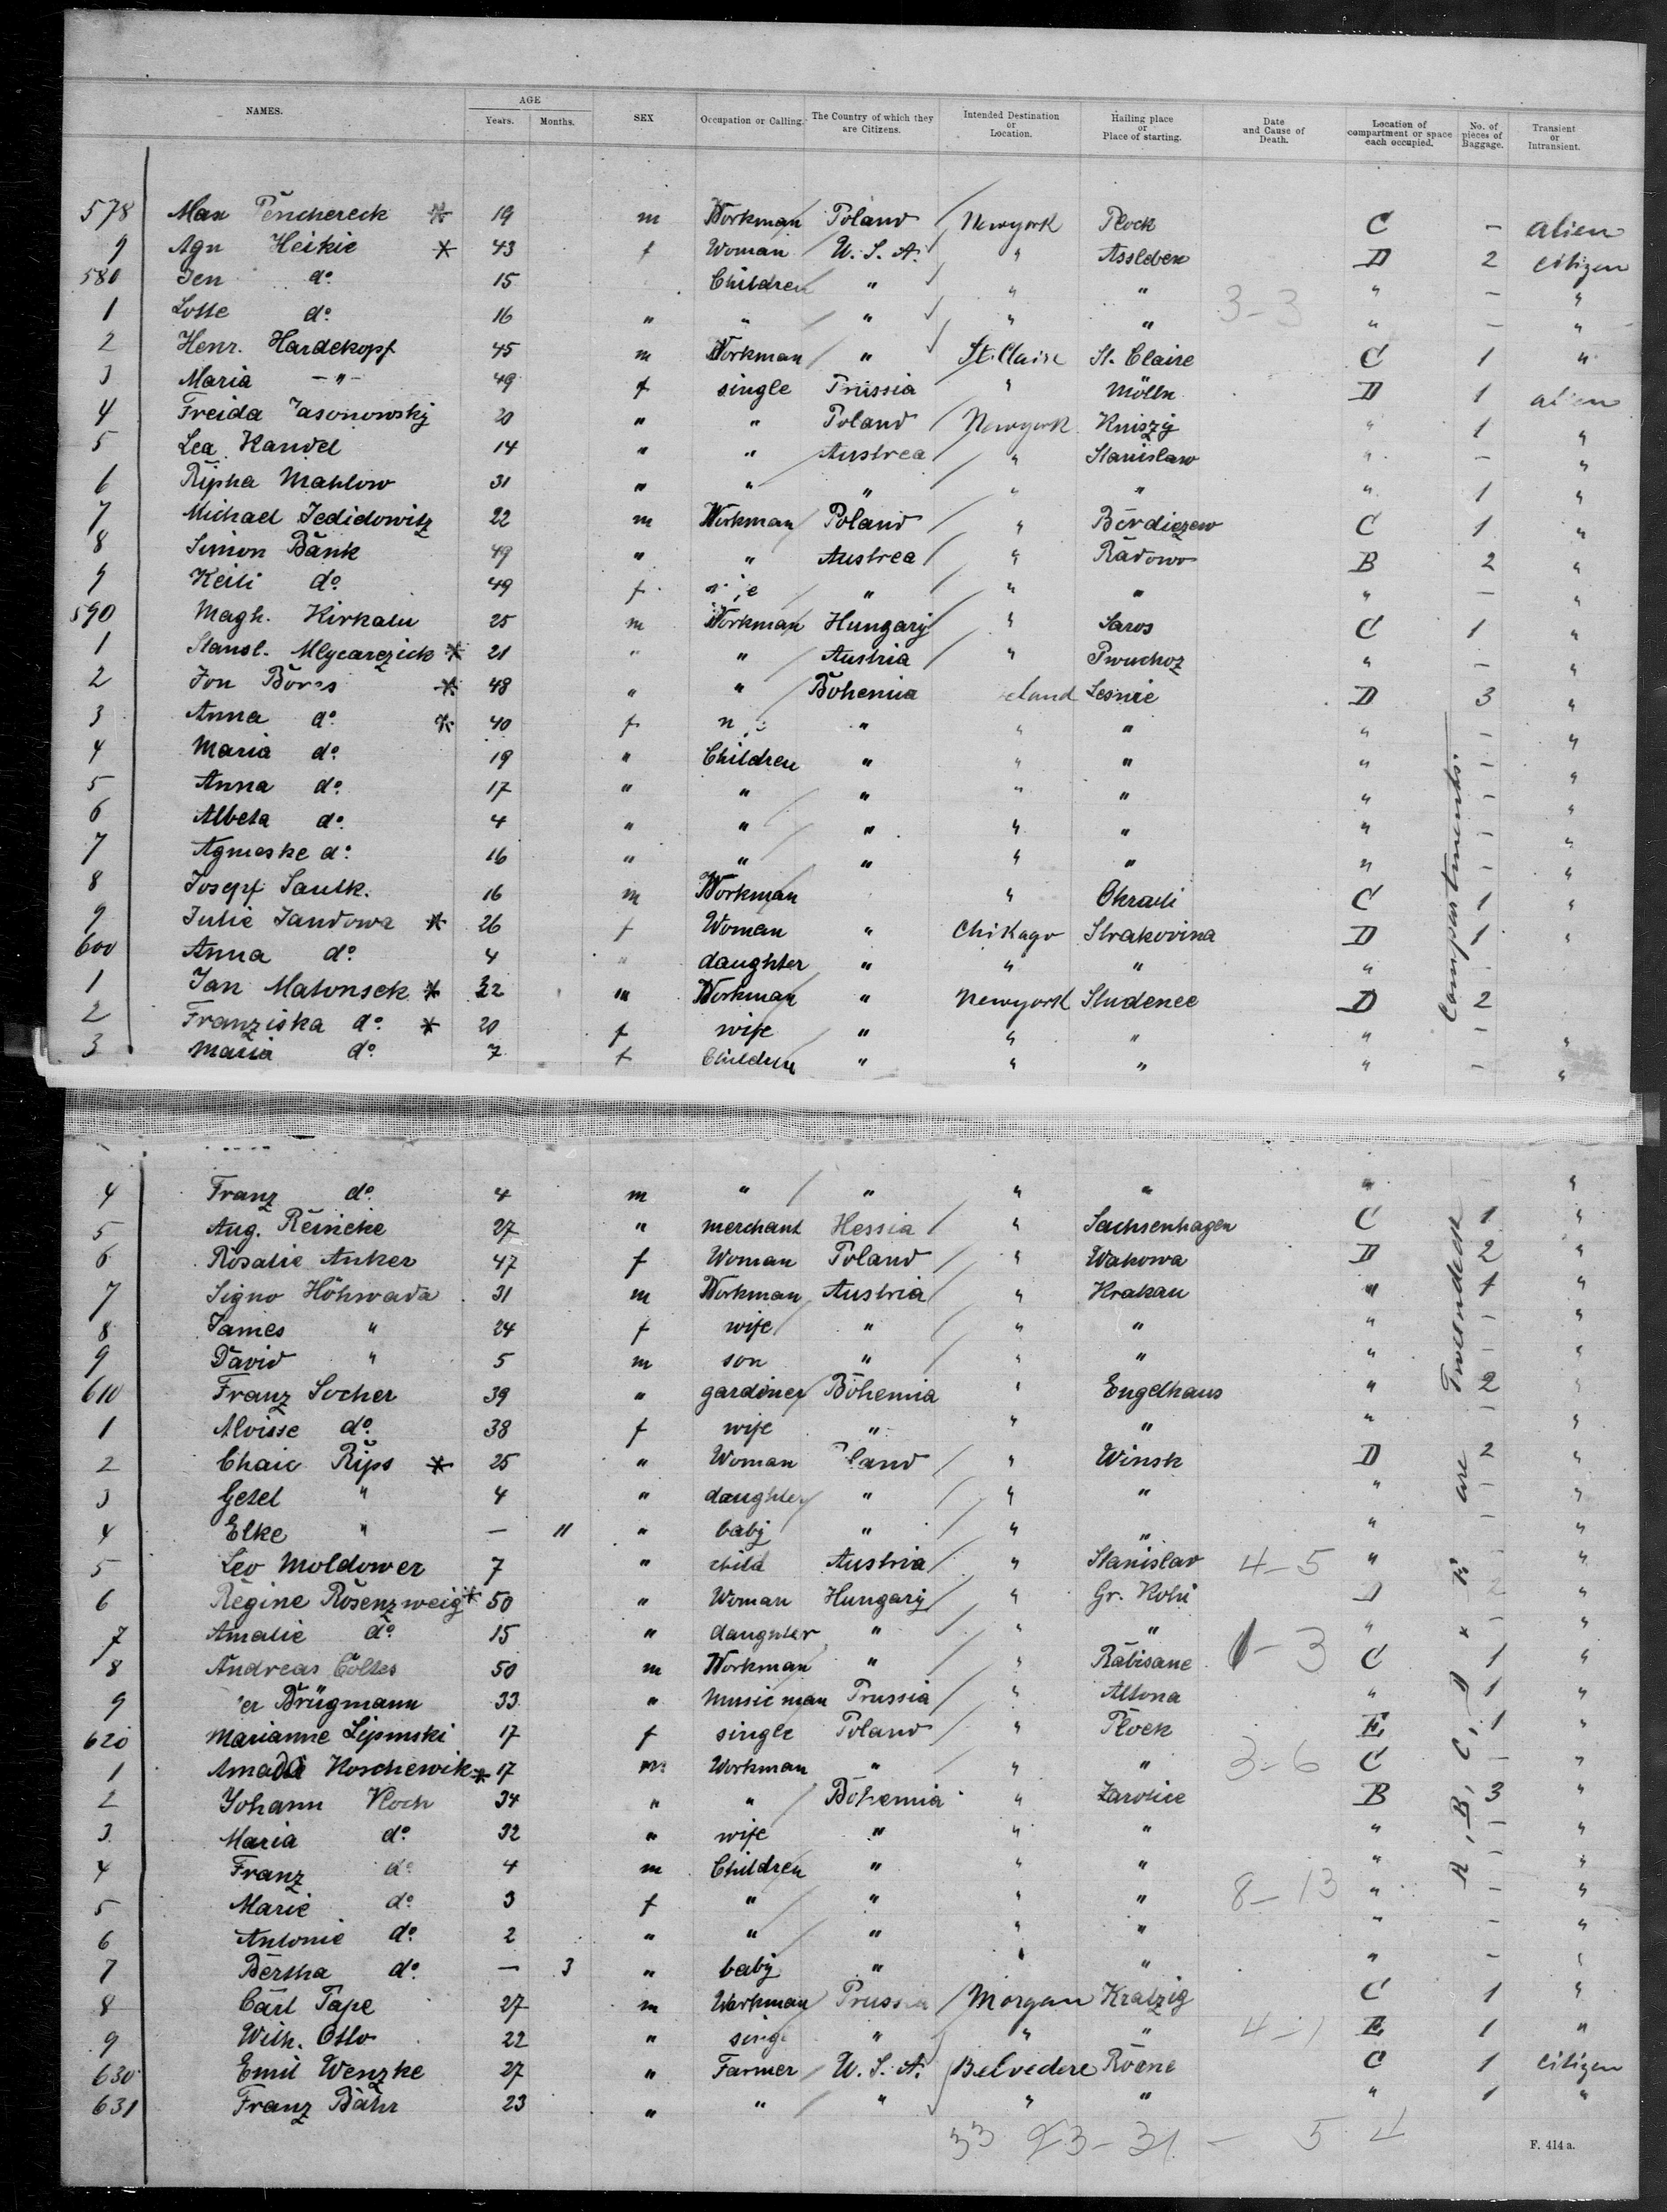 NAMES. AGE Years. Months. SEX Occupation or Calling. The Country of which they are Citizens. Intended Destination or Location. Hailing place or Place of starting. Date and Cause of Death. Location of compartment or space each occupied. No. of pieces of Baggage. Transient or Intransient.
578 Max 19 m Workman Poland Newyork Plock C - alien
9 Agn Heikie * 43 f Woman U. S. A. " Assleben D 2 citizen
580 Jen do 15 Children " " " " - "
1 Lotte do 16 " " " " " 3-3 " - "
2 Henr. Hardekopf 45 m Workman " St. Claire St. Claire C 1 "
3 Maria -"- 49 f single Prussia " Mölln D 1 alien
4 Freida Jasonowsky 20 " " Poland Newyork Kniszy " 1 "
5 Lea Kandel 14 " " Austrea " Stanislaw " - "
6 Ripka Mahlow 31 " " " " " " 1 "
7 Michael Jedidowitz 22 m Workman Poland " Berdiczew C 1 "
8 Simon Bank 49 " " Austrea " Radowo B 2 "
9 Keili do 49 f " " " " - "
590 Magh. Kirkalu 25 m Workman Hungary " Saros C 1 "
1 Stansl. Mlycarezick * 21 " " Austria " " - "
2 Jon Bores * 48 " " Bohemia eland Lesnie D 3 "
3 Anna do * 40 f " " " " - "
4 Maria do 19 " Children " " " " - "
5 Anna do 17 " " " " " " - "
6 Albeta do 4 " " " " " " - "
7 Agnieske do 16 " " " " " " - "
8 Josepf Saulk. 16 m Workman " C 1 "
9 Julie Jandowa * 26 f Woman " Chikago Strakovina D 1 "
600 Anna do 4 " daughter " " " " -
1 Jan Matonsek * 32 m Workman " Newyork Studenee D 2
2 Franziska do * 20 f wife " " " " - "
3 Maria do 7 f Children " " " " - "
4 Franz do 4 m " " " " " - "
5 Aug. Reinicke 27 " merchant Hessia " Sachsenhagen C 1 "
6 Rosalie Anker 47 f Woman Poland " Wakowa D 2 "
7 Signo Höhwada 31 m Workman Austria " Krakau " 1 "
8 James " 24 f wife " " " " - "
9 David " 5 m son " " " " - "
610 Franz Socher 39 " gardiner Bohemia " Engelhaus " 2 "
1 Aloisse do 38 f wife " " " " - "
2 Chaie Rips * 25 " Woman land " Winsk D 2 "
3 Getel " 4 " daughter " " " " - "
4 Elke " - 11 " baby " " " " - "
5 Leo Moldower 7 " child Austria " Stanislav 4-5 " - "
6 Regine Rosenzweig * 50 " Woman Hungary " Gr. D 2 "
7 Amalie do 15 " daughter " " " " - "
8 Andreas Coltes 50 m Workman " " Rabisane 1-3 C 1 "
9 er Brügmann 33 " Music man Prussia " Altona " 1 "
620 Marianne Lipinski 17 f single Poland " Plock E 1 "
1 Koschewik * 17 m Workman " " " 3-6 C - "
2 Johann Koch 34 " " Bohemia " B 3 "
3 Maria do 32 " wife " " " " - "
4 Franz do 4 m Children " " " " - "
5 Marie do 3 f " " " " 8-13 " - "
6 Antonie do 2 " " " " " " - "
7 Bertha do - 3 " baby " " " " - "
8 Carl Pape 27 m Workman Prussia Morgan Kratzig C 1 "
9 Wilh. Otto 22 " " " " 4-1 E 1 "
630 Emil Wenzke 27 " Farmer U. S. A. Belvedere C 1 citizen
631 Franz Bähr 23 " " " " " " 1 "
A, B, C, D are Tweendeck Compartments.
33 23-31 - 5
F. 414 a.